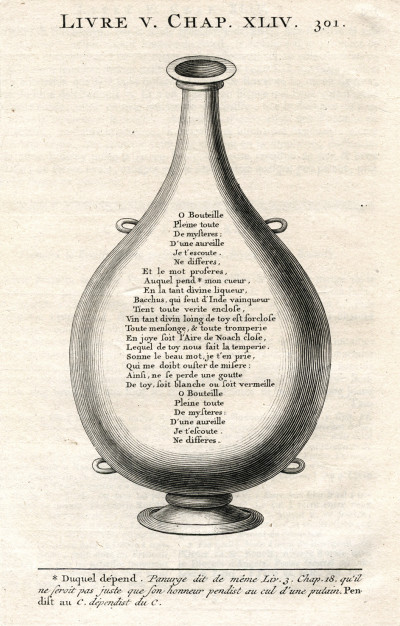 LIVRE V. CHAP. XLIV. 301.
O Bouteille
Pleine toute
De myſteres:
D'une aureille
Je t'eſcoute.
Ne differes,
Et le mot proferes,
Auquel pend * mon cueur,
En la tant divine liqueur,
Bacchus, qui feut d'Inde vainqueur
Tient toute verite encloſe,
Vin tant divin loing de toy eſt forcloſe
Toute menſonge, & toute tromperie
En joye ſoit l'Aire de Noach cloſe,
Lequel de toy nous fait la temperie.
Sonne le beau mot, je t'en prie,
Qui me doibt ouſter de miſere:
Ainſi, ne ſe perde une goutte
De toy, ſoit blanche ou ſoit vermeille
O Bouteille
Pleine toute
De myſteres:
D'une aureille
Je t'eſcoute.
Ne differes.
* Duquel dépend. Panurge dit de même Liv. 3. Chap. 18. qu'il
ne ſeroit pas juste que ſon honneur pendiſt au cul d'une putain. Pen
diſt au C. dépendist du C.